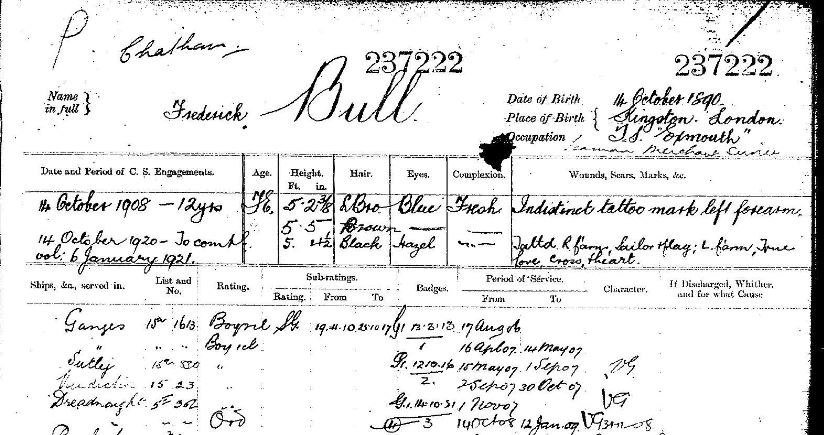 P
Chatham
237222
237222
Name in full } Frederick Bull
Date of Birth 14 October 1890
Place of Birth { Kingston. London.
Occupation T.S. "Exmouth"
Seaman Merchant Service
Date and Period of C. S. Engagements. Age. Height. Hair. Eyes. Complexion. Wounds, Scars, Marks, &c.
Ft. in.
14 October 1908 — 12 yrs 5. 2 L Bro Blue Fresh Indistinct tattoo mark left forearm.
5 5 Brown
14 October 1920 - To compl. 5. 4½ Black Hazel Tattd. R farm, Sailor & Flag; L. farm, True
vol: 6 January 1921. love, Cross, Heart.
Ships, &c., served in. List and No. Rating. Sub-ratings. Badges. Period of Service. Character. If Discharged, Whither, and for what Cause
Rating. From To From To
Ganges 15a 1613 Boy 13.3.13 17 Aug 06
" " " Boy 1 16 Apl 07 14 May 07
Sutlej 15a 530 " 12.10.16 15 May 07 1 Sep 07 VG
15 23 " 2. 2 Sep 07 30 Oct 07
Dreadnought 5a 362 " 14.10.21 1 Nov 07 VG
" " Ord 3 14 Oct 08 12 Jan 09 VG